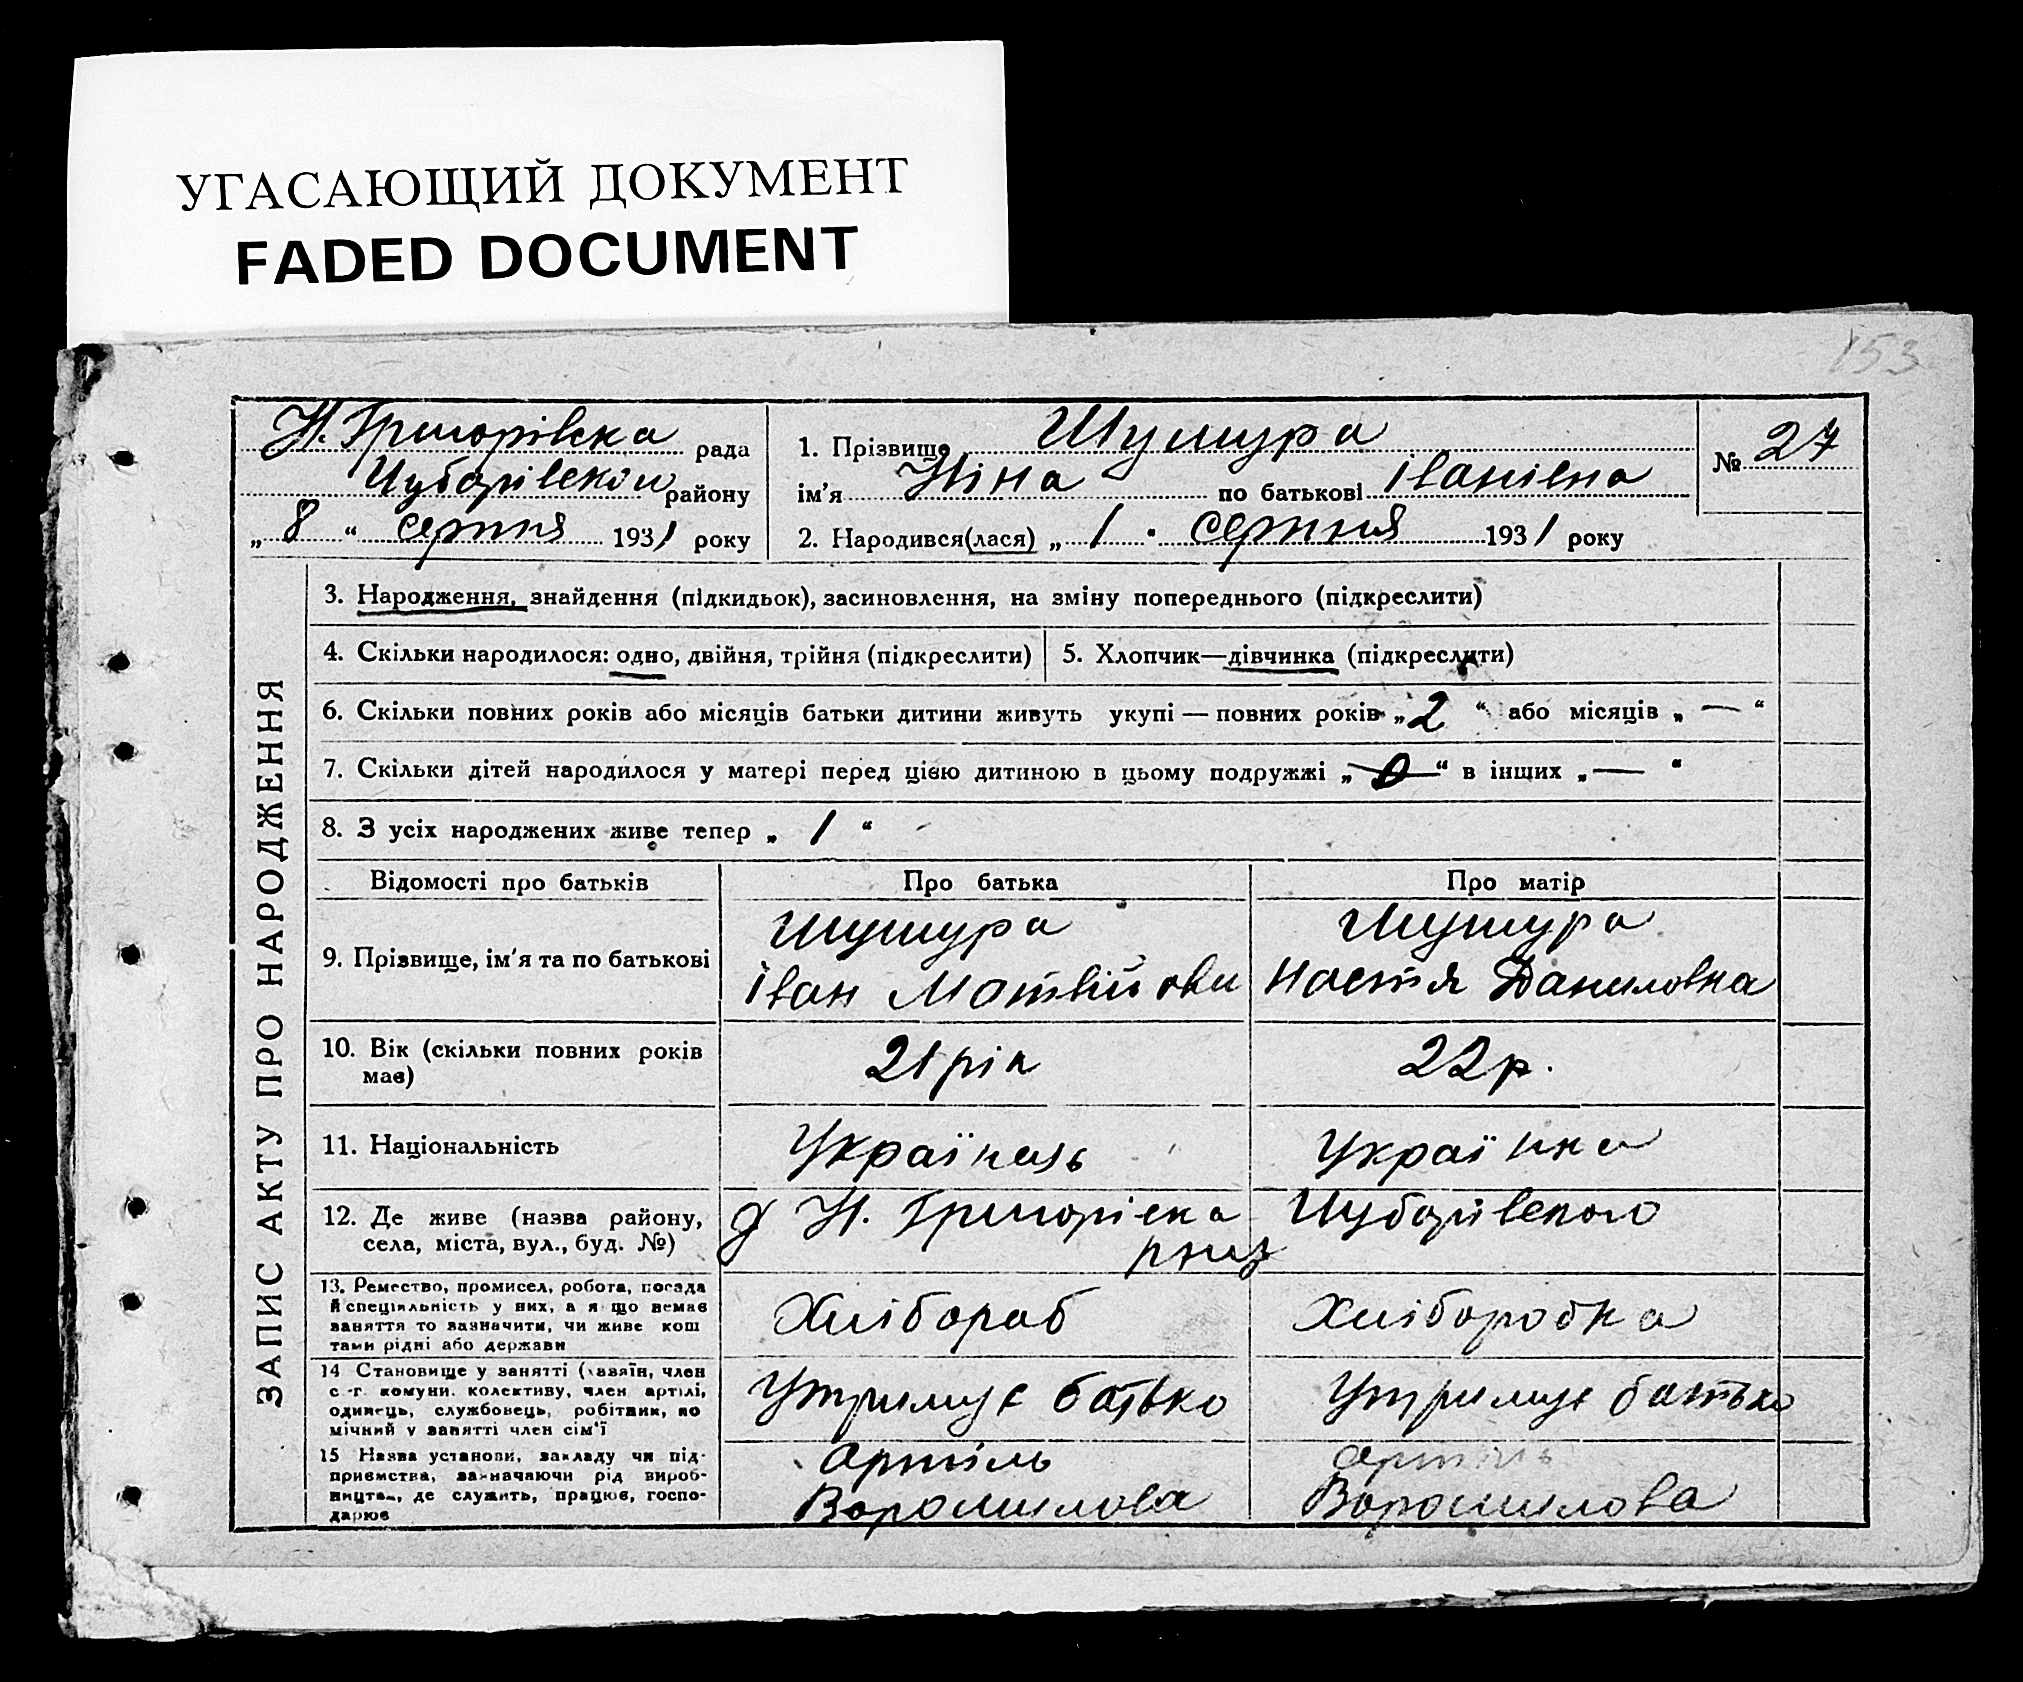 УГАСАЮЩИЙ ДОКУМЕНТ
FADED DOCUMENT
153
Н. Григорівка рада
Чубарівского району
„ 8 “ серпня 1931 року
1. Прізвище Шумура
ім’я Ніна по батькові Іванівна
2. Народився(лася) „ 1 “ серпня 1931 року
№ 27
ЗАПИС АКТУ ПРО НАРОДЖЕННЯ
3. Народження, знайдення (підкидьок), засиновлення, на зміну попереднього (підкреслити)
4. Скільки народилося: одно, двійня, трійня (підкреслити)
5. Хлопчик—дівчинка (підкреслити)
6. Скільки повних років або місяців батьки дитини живуть укупі — повних років „ 2 “ або місяців „ — “
7. Скільки дітей народилося у матері перед цією дитиною в цьому подружжі „ 0 “ в інших „ — “
8. З усіх народжених живе тепер „ 1 “
Відомості про батьків
Про батька
Про матір
9. Прізвище, ім’я та по батькові
Шумура
Іван Матвійови
Шумура
Настя Даниловна
10. Вік (скільки повних років
має)
21 рік
22 р.
11. Національність
Українець
Українка
12. Де живе (назва району,
села, міста, вул., буд. №)
Н. Григорівка
Чубарівского
13. Ремество, промисел, робота, посада
й спеціяльність у них, а якщо немає
заняття то зазначити, чи живе кош
тами рідні або держави
Хлібороб
Хліборобка
14 Становище у занятті (хазяїн, член
с.-г. комуни, колективу, член артілі,
одинець, службовець, робітник, по
мічний у занятті член сім’ї
Утримує батько
Утримує батько
15 Назва установи, закладу чи під-
приємства, зазначаючи рід вироб-
ництва, де служить, працює, госпо-
дарює
артіль
Ворошилова
артіль
Ворошилова